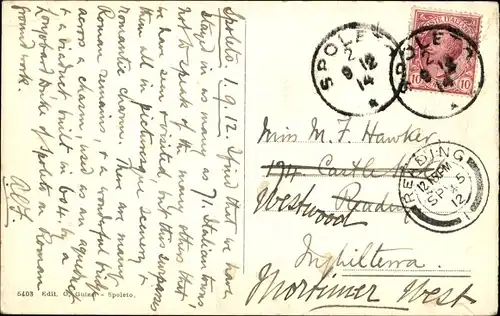 Spoleto 1.9.12. I find that we have
stayed in as many as 71 Italian towns!
not to speak of the many others that
we have seen & visited, but this surpasses
them all in picturesque scenery &
romantic charm. There are many
Roman remains, & a wonderful bridge
across a chasm, used as an aqueduct
& a viaduct built in 604 by a
Longobard Duke of Spoleto on Roman
ground work.
5403 Edit. G. Guizzi - Spoleto.
POSTE ITALIANE
10
10
SPOLETO
2
9 12
14
SPOLETO
2
9 12
14
Miss M. F. Hawker
194 Castle
Reading
Westwood
Inghilterra.
Mortimer West
READING
12.15PM
SP 5
12